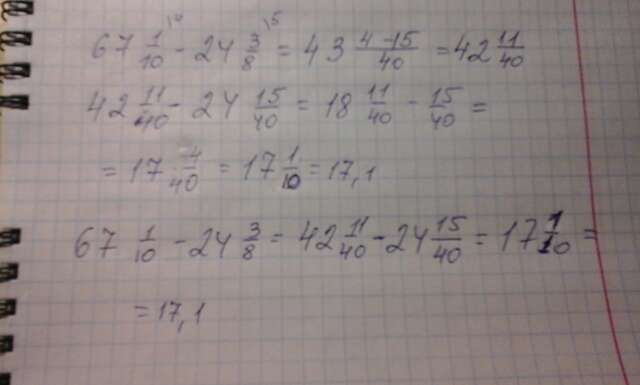 67 1/10 - 24 3/8 = 43 (4-15)/40 = 42 11/40
42 11/40 - 24 15/40 = 18 11/40 - 15/40 =
= 17 4/40 = 17 1/10 = 17,1
67 1/10 - 24 3/8 = 42 11/40 - 24 15/40 = 17 1/10 =
= 17,1